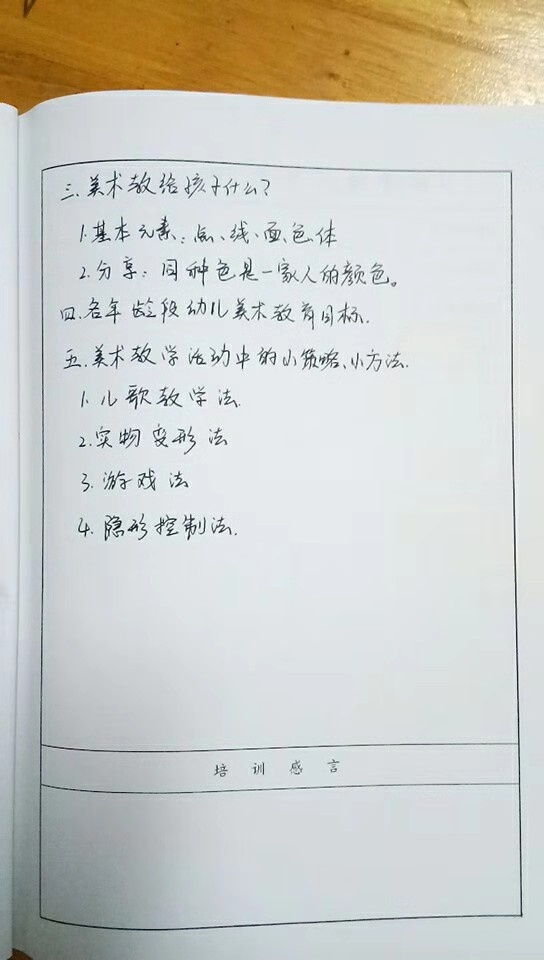 三.美术教给孩子什么?
1.基本元素:点、线、面、色、体
2.分享:同种色是一家人的颜色。
四.各年龄段幼儿美术教育目标.
五.美术教学活动中的小策略、小方法.
1.儿歌教学法.
2.实物变形法
3.游戏法
4.隐形控制法.
培训感言